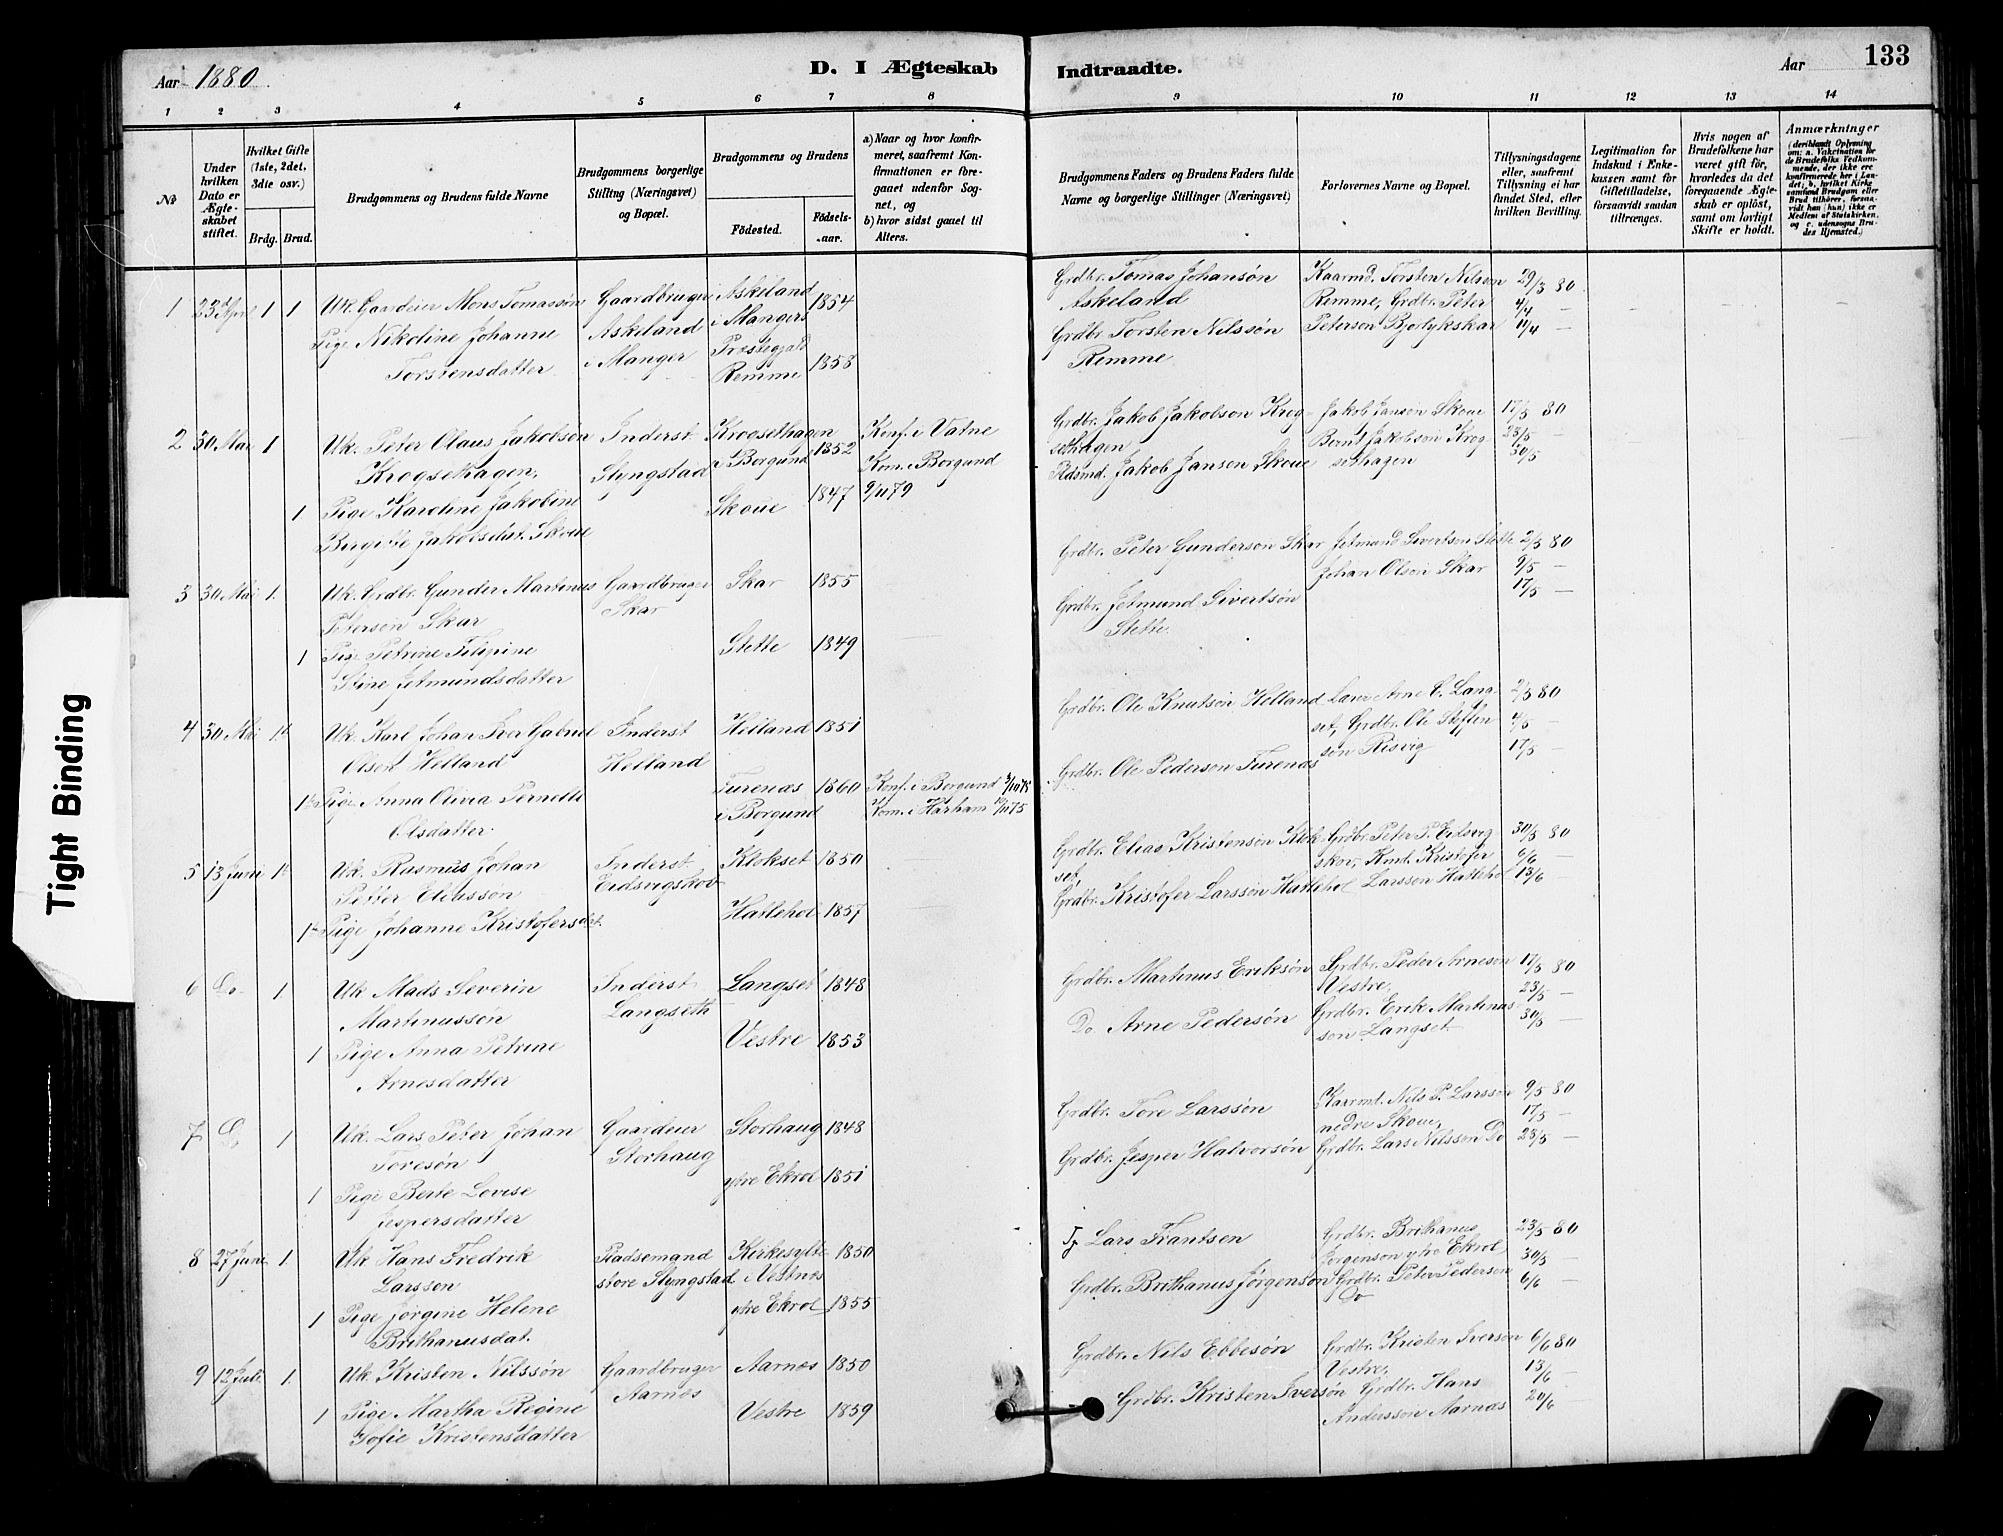 Aar 1880.
D. I Ægteskab
Indtraadte.
Aar
133
1 2 3 4 5 6 7 8 9 10 11 12 13 14
No
Under hvilken Dato er Ægteskabet stiftet.
Hvilket Gifte (1ste, 2det, 3die osv.)
Brdg. Brud.
Brudgommens og Brudens fulde Navne
Brudgommens borgerlige Stilling (Næringsvei) og Bopæl.
Brudgommens og Brudens
Födested.
Födsels-aar.
a) Naar og hvor konfirmeret, saafremt Konfirmationen er foregaaet udenfor Sognet, og
b) hvor sidst gaaet til Alters.
Brudgommens Faders og Brudens Faders fulde Navne og borgerlige Stillinger (Næringsvei)
Forlovernes Navne og Bopæl.
Tillysningsdagene eller, saafremt Tillysning ei har fundet Sted, efter hvilken Bevilling.
Legitimation for Indskud i Enkekassen samt for Giftetilladelse, forsaavidt saadan tiltrænges.
Hvis nogen af Brudefolkene har været gift för, hvorledes da det foregaaende Ægteskab er oplöst, samt om lovligt Skifte er holdt.
Anmærkninger
(deriblandt Oplysning om: a. Vakcination for de Brudefolks Vedkommende, der ikke ere konfirmerede her i Landet; b. hvilket Kirkesamfund Brudgom eller Brud tilhörer, forsaavidt han (hun) ikke er Medlem af Statskirken, og c. udensogns Brudes Hjemsted.)
1 23 April 1 1
Uk. Gaardeier Mons Tomassøn
Pige Nikoline Johanne
Torstensdatter
Gaardbruger
Askeland
i Manger
Askeland
i Mangers
Præstegjald
Remme
1854
1858
Grdbr. Tomas Johansøn
Askeland
Grdbr Torsten Nilssøn
Remme
Kaarmd. Torsten Nilsen
Remme, Grdbr. Peter
Petersen Bjørlykskar
29/3 80
4/4 —
11/4 —
2 30 Mai 1
Uk. Peter Olaus Jakobsøn
Krogsethagen,
1 Pige Karoline Jakobine
Birgitte Jakobsdat. Skoue
Inderst
Slyngstad
Krogsethagen
i Borgund
Skoue
1852
1847
Konf. i Vatne
Kom. i Borgund
9/11 79
Grdbr. Jakob Jakobson Krog-
sethagen
Pldsmd. Jakob Jansen Skoue
Jakob Jansøn Skoue
Bernt Jakobson Krog-
sethagen
17/5 80
23/5 —
30/5
3 30 Mai 1.
Uk. Grdbr. Gunder Martinus
Petersøn Skar
1 Pige Petrine Filipine
Stine Jetmundsdatter
Gaardbruger
Skar
Skar
Stette
1855
1849
Grdbr. Peter Gunderson Skar
Grdbr. Jetmund Sivertsøn
Stette.
Jetmund Sivertsen Stette
Johan Olsen Skar
2/5 80
9/5 —
17/5 —
4 30 Mai 1ste
Uk. Karl Johan Iver Gabriel
Olsen Helland
1ste Pige Anna Olivia Pernette
Olsdatter.
Inderst
Helland
Helland
Furenæs
i Borgund
1851
1860
Konf. i Borgund
Kom. i Harham
Grdbr. Ole Knutsøn Helland
Grdbr. Ole Pederson Furenæs
Arne Lang-
set, Grdbr. Ole Steffen-
søn Risvig
2/5 80
4/5 —
17/5 —
5 13 Juni 1ste
Uk. Rasmus Johan
Petter Eliassøn
1ste Pige Johanne Kristofersdat.
Inderst
Eidsvigskov
Klokset
Hatlehol
1850
1857
Grdbr. Elias Kristensøn Klok-
set,
Grdbr. Kristofer Larssøn Hatlehol
Grdbr. Peter P. Eidsvig-
skov, Kristofer
Larssen Hatlehol
30/5 80
6/6 —
13/6
6 Do 1.
Uk Mads Severin
Martinussøn
1 Pige Anna Petrine
Arnesdatter
Inderst
Langseth
Langset
Vestre
1848
1853
Grdbr. Martinus Eriksøn
Do Arne Pedersøn
Grdbr. Peder Arneson
Vestre,
Grdbr. Erik Martinus-
søn Langset
17/5 80
23/5 —
30/5 —
7 Do 1
Uk. Lars Peter Johan
Toresøn
1 Pige Berte Lovise
Jespersdatter
Gaardeier
Storhaug
Storhaug
ytre Ekrol
1848
1851
Grdbr. Tore Larssøn
Grdbr. Jesper Halvorsøn
Kaarmt. Nils P. Larssøn
nedre Skoue,
Grdbr. Lars Nilssøn Do
9/5 80
17/5 —
23/5 —
8 27 Juni 1
Uk Hans Fredrik
Larssen
1 Pige Jørgine Helene
Brithanusdat.
Pladsemand
store Slyngstad
Kirkesylte
i Vestnes
ytre Ekrol
1850
1855
Lars Frantsen
Grdbr. Brithanus Jørgenson
Grdbr. Brithanus
Jørgenson ytre Ekrol
Grdbr. Peter Pedersen
Do
23/5 80
30/5 —
6/6 —
9 12 Juli 1.
Uk Kristen Nilssøn
1 Pige Martha Regine
Sofie Kristensdatter
Gaardbruger
Aarnæs
Aarnæs
Vestre
1850
1859
Grdbr. Nils Ebbesøn
Grdbr. Kristen Iversøn
Grdbr. Kristen Iversøn
Vestre,
Grdbr. Hans
Anderssøn Aarnæs
6/6 80
13/6 —
20/6 —
Tight Binding